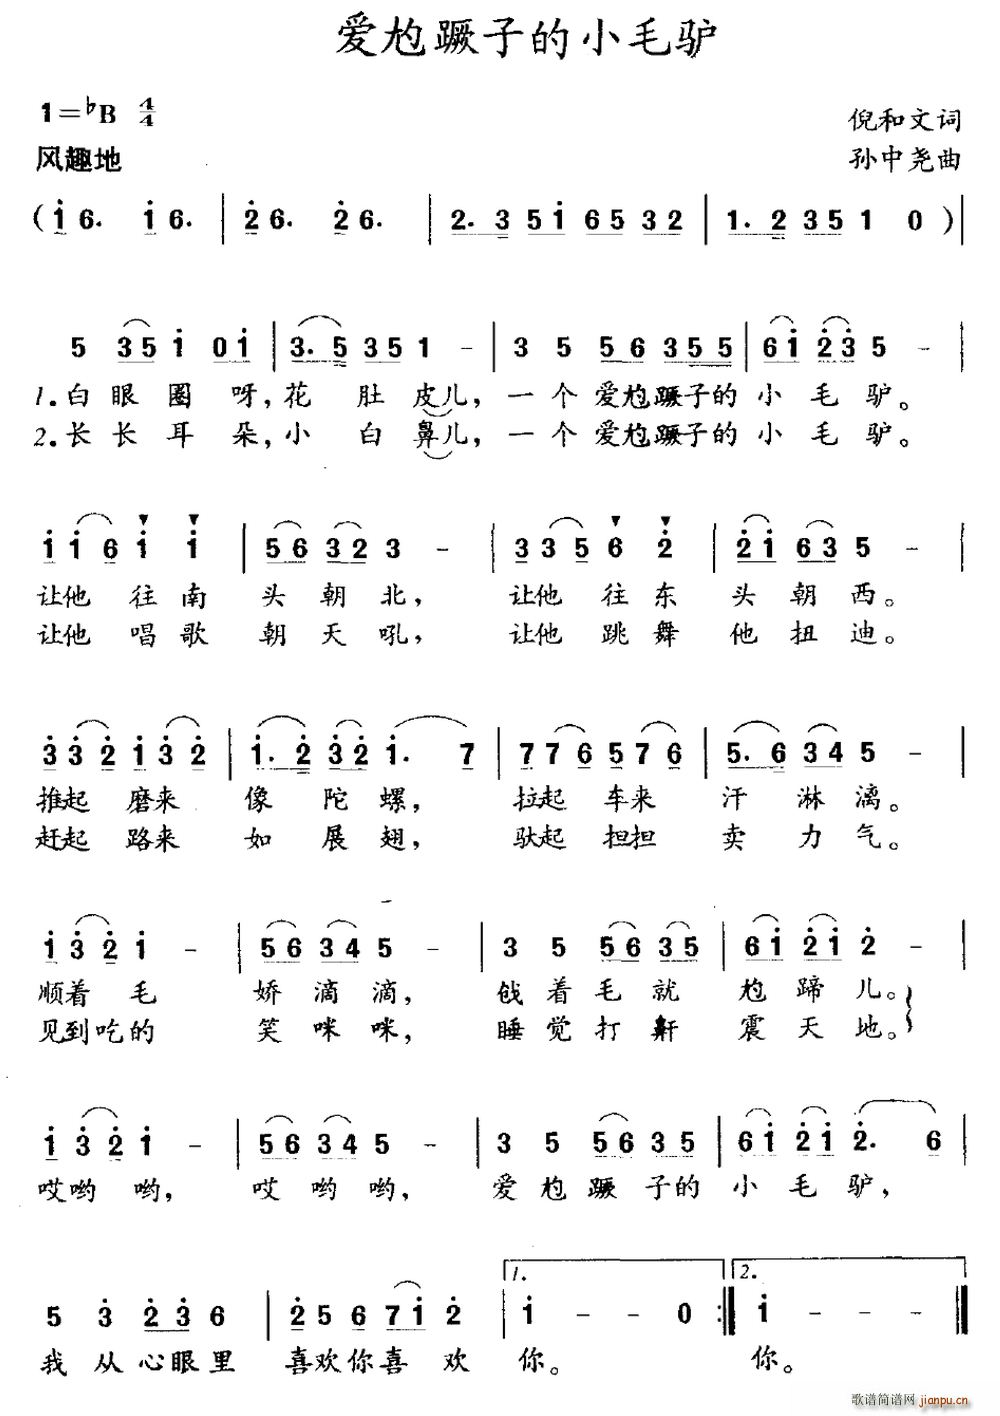 爱尥蹶子的小毛驴
1=♭B 4/4
倪和文词
风趣地
孙中尧曲
( i 6. i 6. | 2 6. 2 6. | 2. 3 5 i 6 5 3 2 | 1. 2 3 5 1 0 ) |
5 3 5 i 0 i | 3. 5 3 5 1 - | 3 5 5 6 3 5 5 | 6 i 2 3 5 - |
1.白眼圈呀,花肚皮儿,一个爱尥蹶子的小毛驴。
2.长长耳朵,小白鼻儿,一个爱尥蹶子的小毛驴。
i i 6 i i | 5 6 3 2 3 - | 3 3 5 6 2 | 2 i 6 3 5 - |
让他往南头朝北,让他往东头朝西。
让他唱歌朝天吼,让他跳舞他扭迪。
3 3 2 i 3 2 | i. 2 3 2 i. 7 | 7 7 6 5 7 6 | 5. 6 3 4 5 - |
推起磨来像陀螺,拉起车来汗淋漓。
赶起路来如展翅,驮起担担卖力气。
i 3 2 i - | 5 6 3 4 5 - | 3 5 5 6 3 5 | 6 i 2 i 2 - |
顺着毛娇滴滴,戗着毛就尥蹄儿。
见到吃的笑咪咪,睡觉打鼾震天地。
i 3 2 i - | 5 6 3 4 5 - | 3 5 5 6 3 5 | 6 i 2 i 2. 6 |
哎哟哟,哎哟哟,爱尥蹶子的小毛驴,
1. 2.
5 3 2 3 6 | 2 5 6 7 i 2 | i - - 0 :| i - - - |
我从心眼里喜欢你喜欢你。你。
歌谱简谱网 jianpu.cn